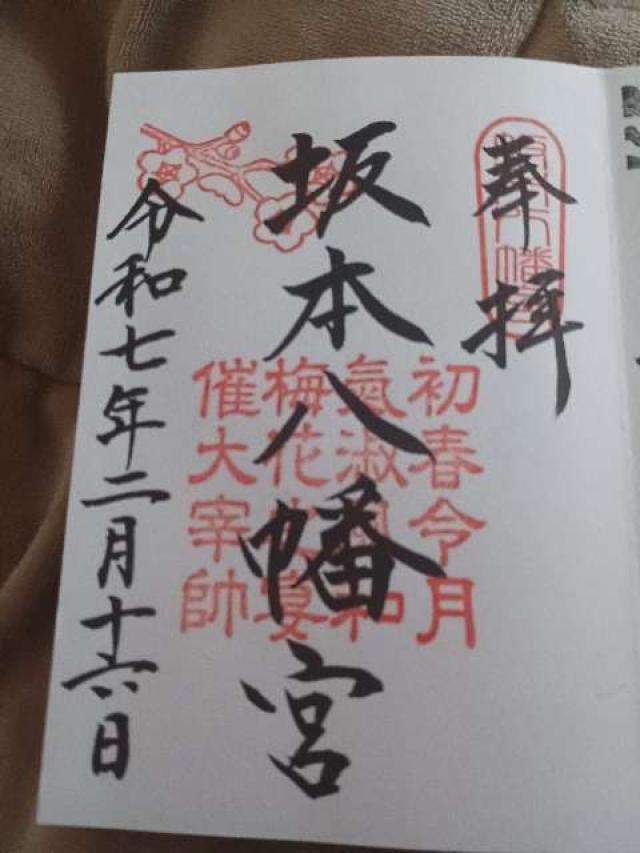 奉拝
坂本八幡宮
初春令月
氣淑風和
梅花宴
催大宰帥
令和七年二月十六日